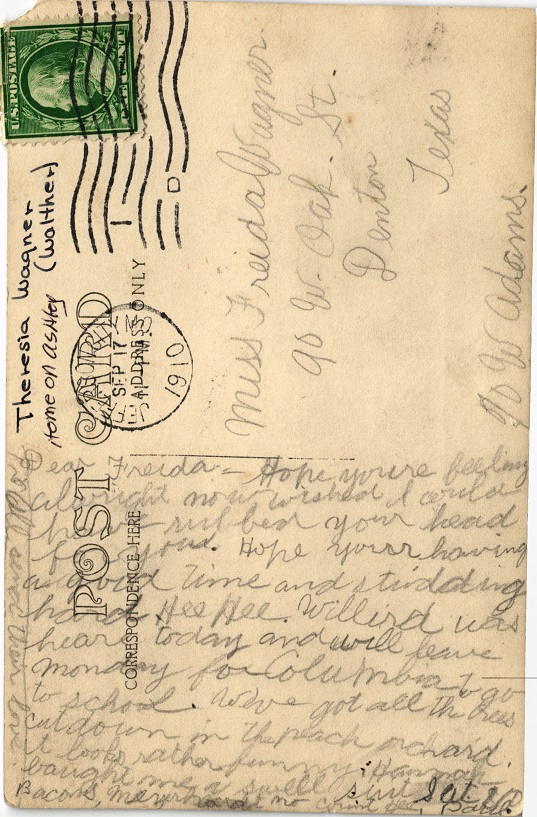 U.S. POSTAGE
Theresia Wagner
(Walther)
Home on Ashley
POST CARD
ADDRESS ONLY
CORRESPONDENCE HERE
SEP 17
1910
D
Miss Freida Wagner.
90 W. Oak. St.
Denton
Texas
90 W Adams.
Dear Freida = Hope youre feeling
allright now wished I could
have rubbed your head
for you. Hope your having
a good time and studding
hard Hee Hee. Willird was
hear today and will leave
monday for Columbia to go
to school. We've got all the trees
cut down in the peach orchard.
it looks rather funny. Hannah
baught me a swell
Bacons,